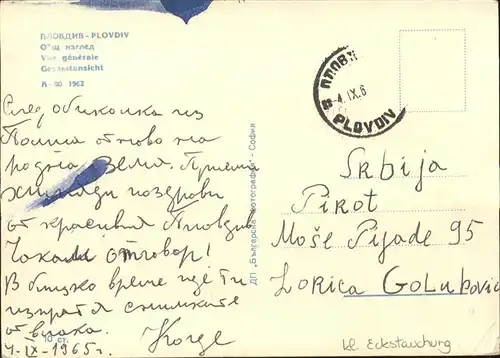 ПЛОВДИВ - PLOVDIV
Общ изглед
Vue générale
Gesamtansicht
А - 80 1962
След обиколка из
Полша отново на
родна земя. Приеми
хиляди поздрави
от красивия Пловдив
Чакам отговор!
В близко време ще ти
изпратя снимките
от влака.
4-IX-1965г. Жорже
10 ст.
ДП „Българска фотография" - София
ПЛОВДИВ
4.IX.6
PLOVDIV
Srbija
Pirot
Moše Pijade 95
Zorica Golubović
kl. Eckstauchung